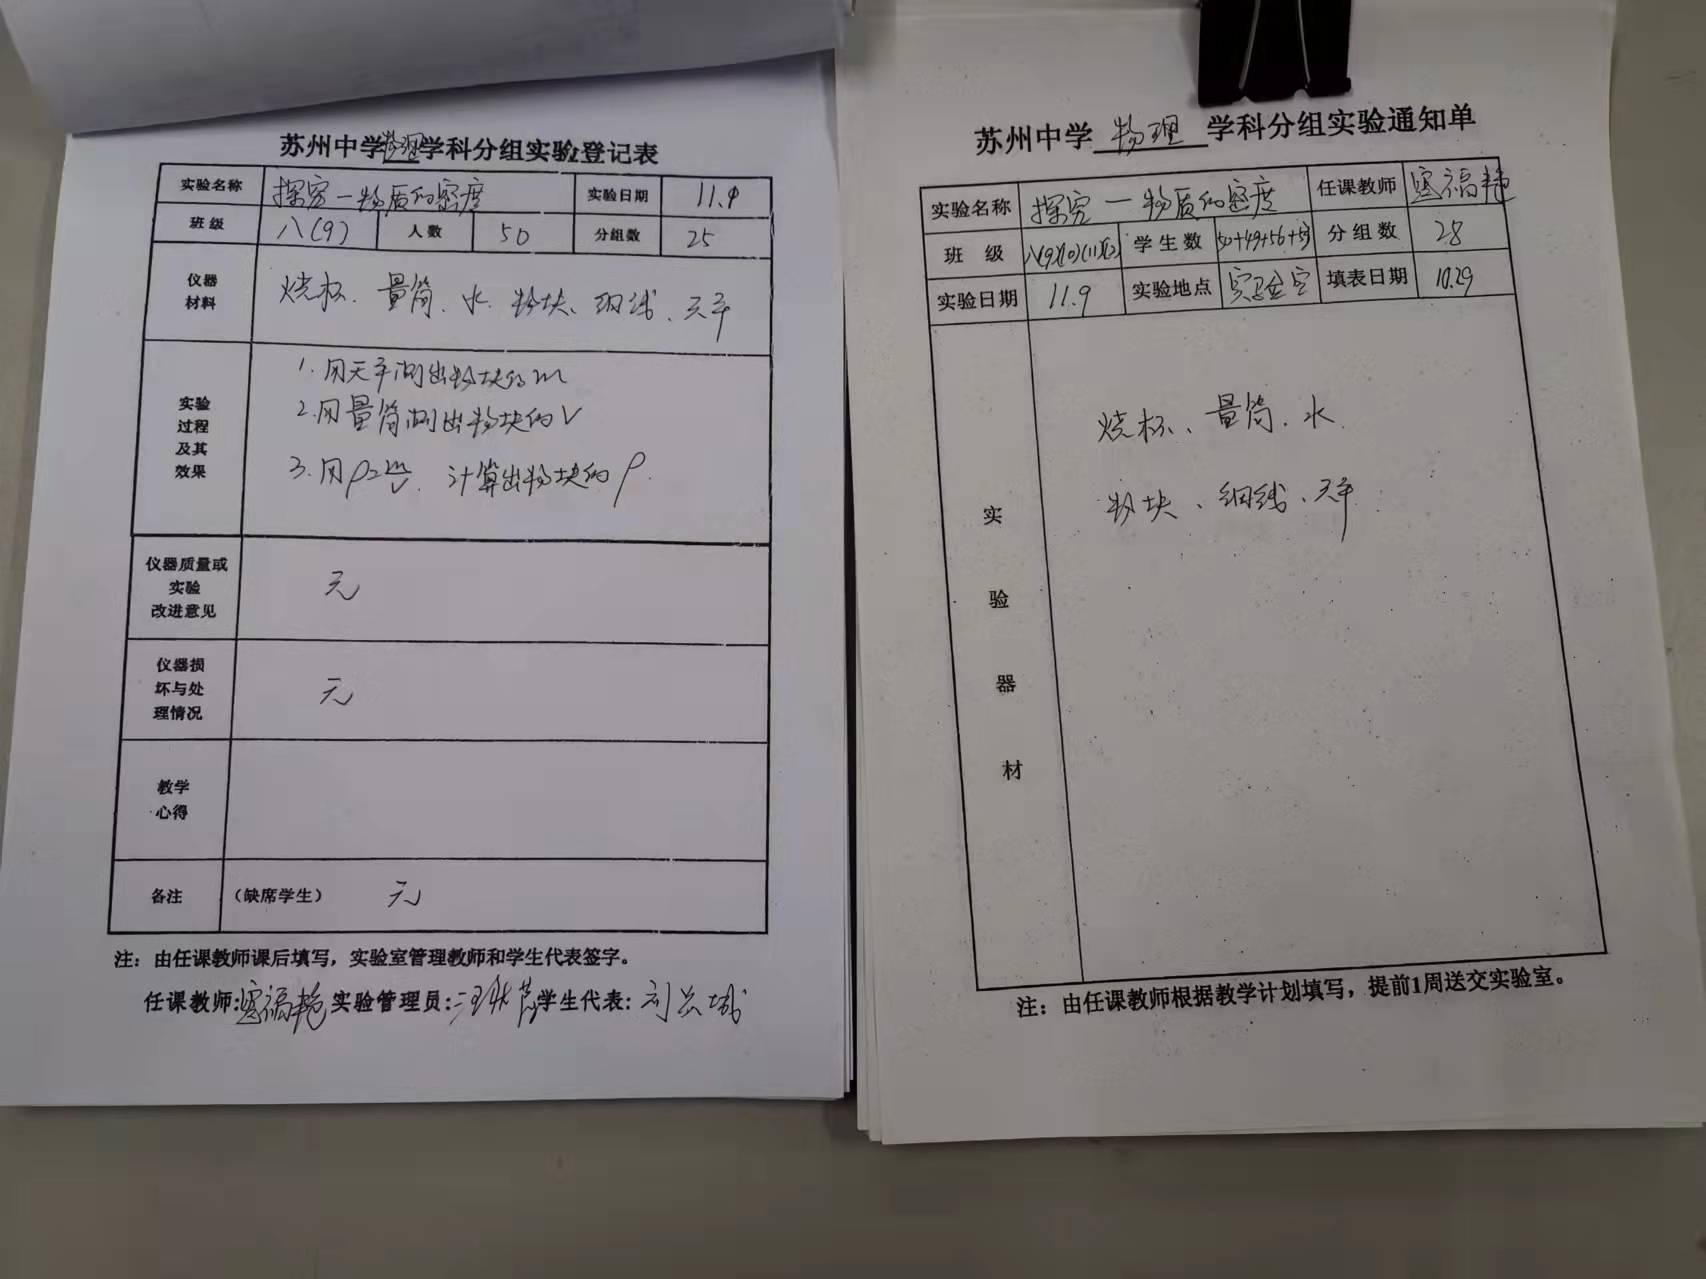 苏州中学物理学科分组实验登记表
实验名称 探究一物质的密度 实验日期 11.9
班级 八(9) 人数 50 分组数 25
仪器
材料
烧杯、量筒、水、物块、细线、天平
实验
过程
及其
效果
1.用天平测出物块的m
2.用量筒测出物块的V
3.用ρ=m/V.计算出物块的ρ.
仪器质量或
实验
改进意见
无
仪器损
坏与处
理情况
无
教学
心得
备注 (缺席学生) 无
注：由任课教师课后填写，实验室管理教师和学生代表签字。
任课教师: 实验管理员: 学生代表:
苏州中学 物理 学科分组实验通知单
实验名称 探究一物质的密度 任课教师
班 级 八(9)(10)(11)(12) 学生数 50+49+56+ 分组数 28
实验日期 11.9 实验地点 实验室 填表日期 10.29
实
验
器
材
烧杯、量筒、水
物块、细线、天平
注：由任课教师根据教学计划填写，提前1周送交实验室。